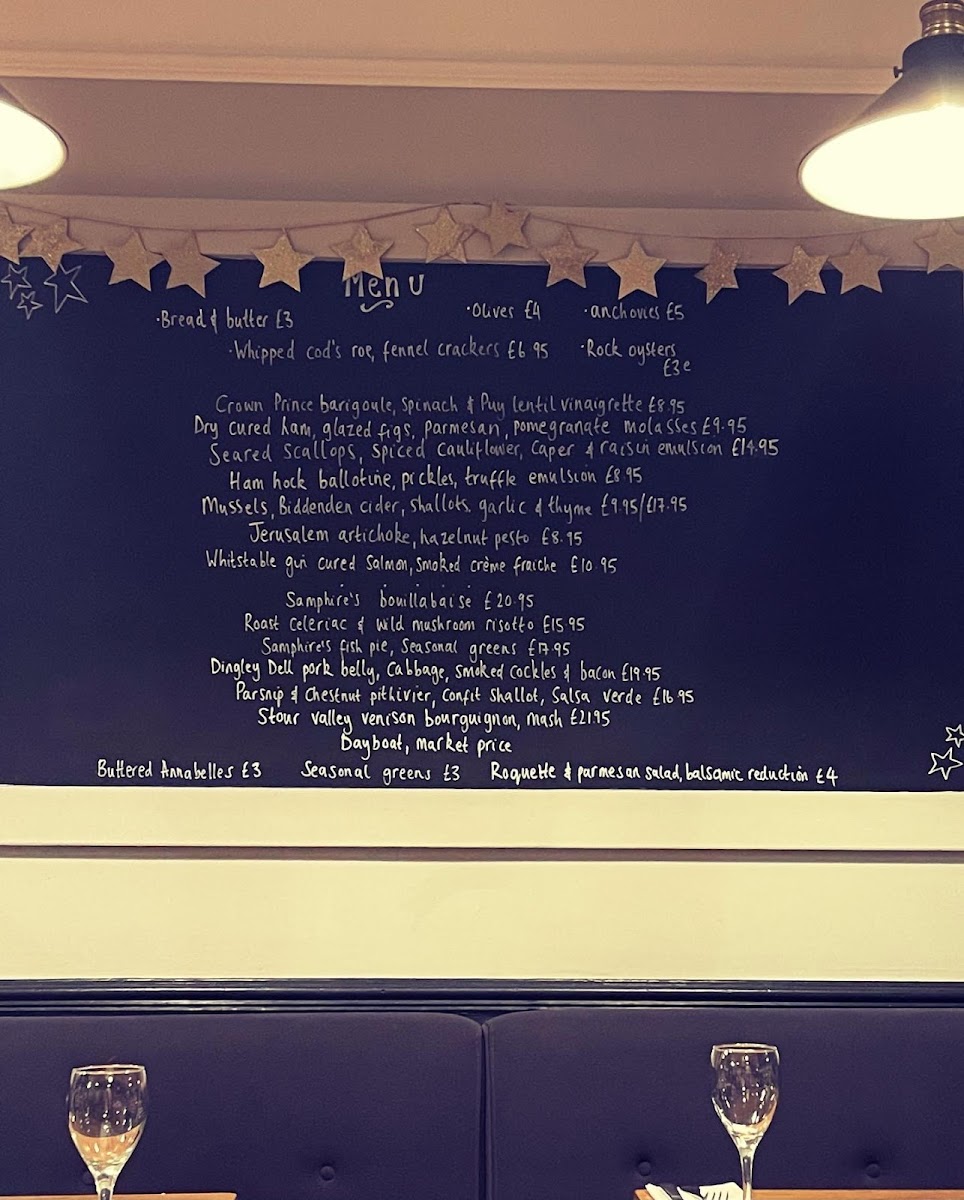 Menu
·Bread & butter £3 ·Olives £4 ·anchovies £5
·Whipped cod's roe, fennel crackers £6.95 ·Rock oysters
£3e
Crown Prince barigoule, spinach & Puy lentil vinaigrette £8.95
Dry cured ham, glazed figs, parmesan, pomegranate molasses £9.95
Seared Scallops, spiced cauliflower, caper & raisin emulsion £14.95
Ham hock ballotine, pickles, truffle emulsion £8.95
Mussels, Biddenden cider, shallots, garlic & thyme £9.95/£17.95
Jerusalem artichoke, hazelnut pesto £8.95
Whitstable gin cured salmon, smoked crème fraiche £10.95
Samphire's bouillabaise £20.95
Roast Celeriac & wild mushroom risotto £15.95
Samphire's fish pie, Seasonal greens £17.95
Dingley Dell pork belly, Cabbage, smoked cockles & bacon £19.95
Parsnip & Chestnut pithivier, Confit Shallot, Salsa verde £16.95
Stour valley venison bourguignon, mash £21.95
Dayboat, market price
Buttered Annabelles £3 Seasonal greens £3 Roquette & parmesan salad, balsamic reduction £4